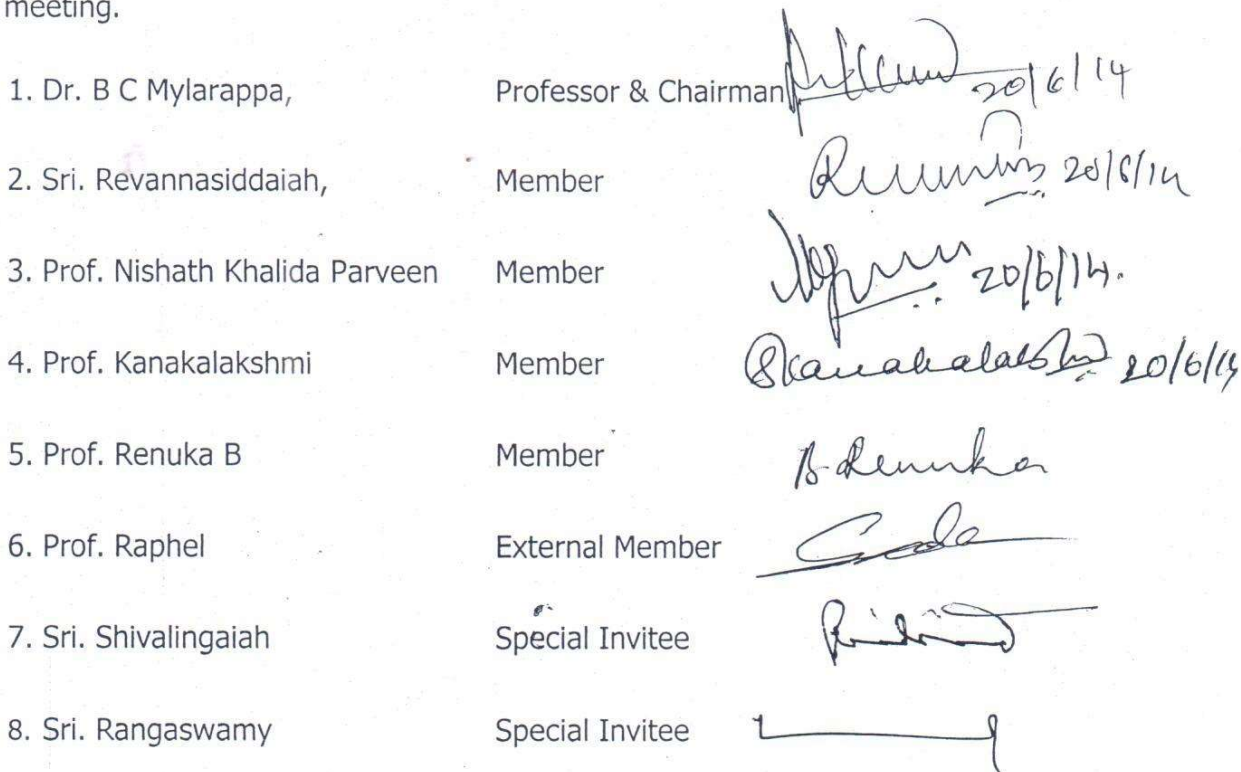 meeting.
1. Dr. B C Mylarappa, Professor & Chairman 20/6/14
2. Sri. Revannasiddaiah, Member 20/6/14
3. Prof. Nishath Khalida Parveen Member 20/6/14.
4. Prof. Kanakalakshmi Member SKanakalakshmi 20/6/14
5. Prof. Renuka B Member B Renuka
6. Prof. Raphel External Member
7. Sri. Shivalingaiah Special Invitee
8. Sri. Rangaswamy Special Invitee